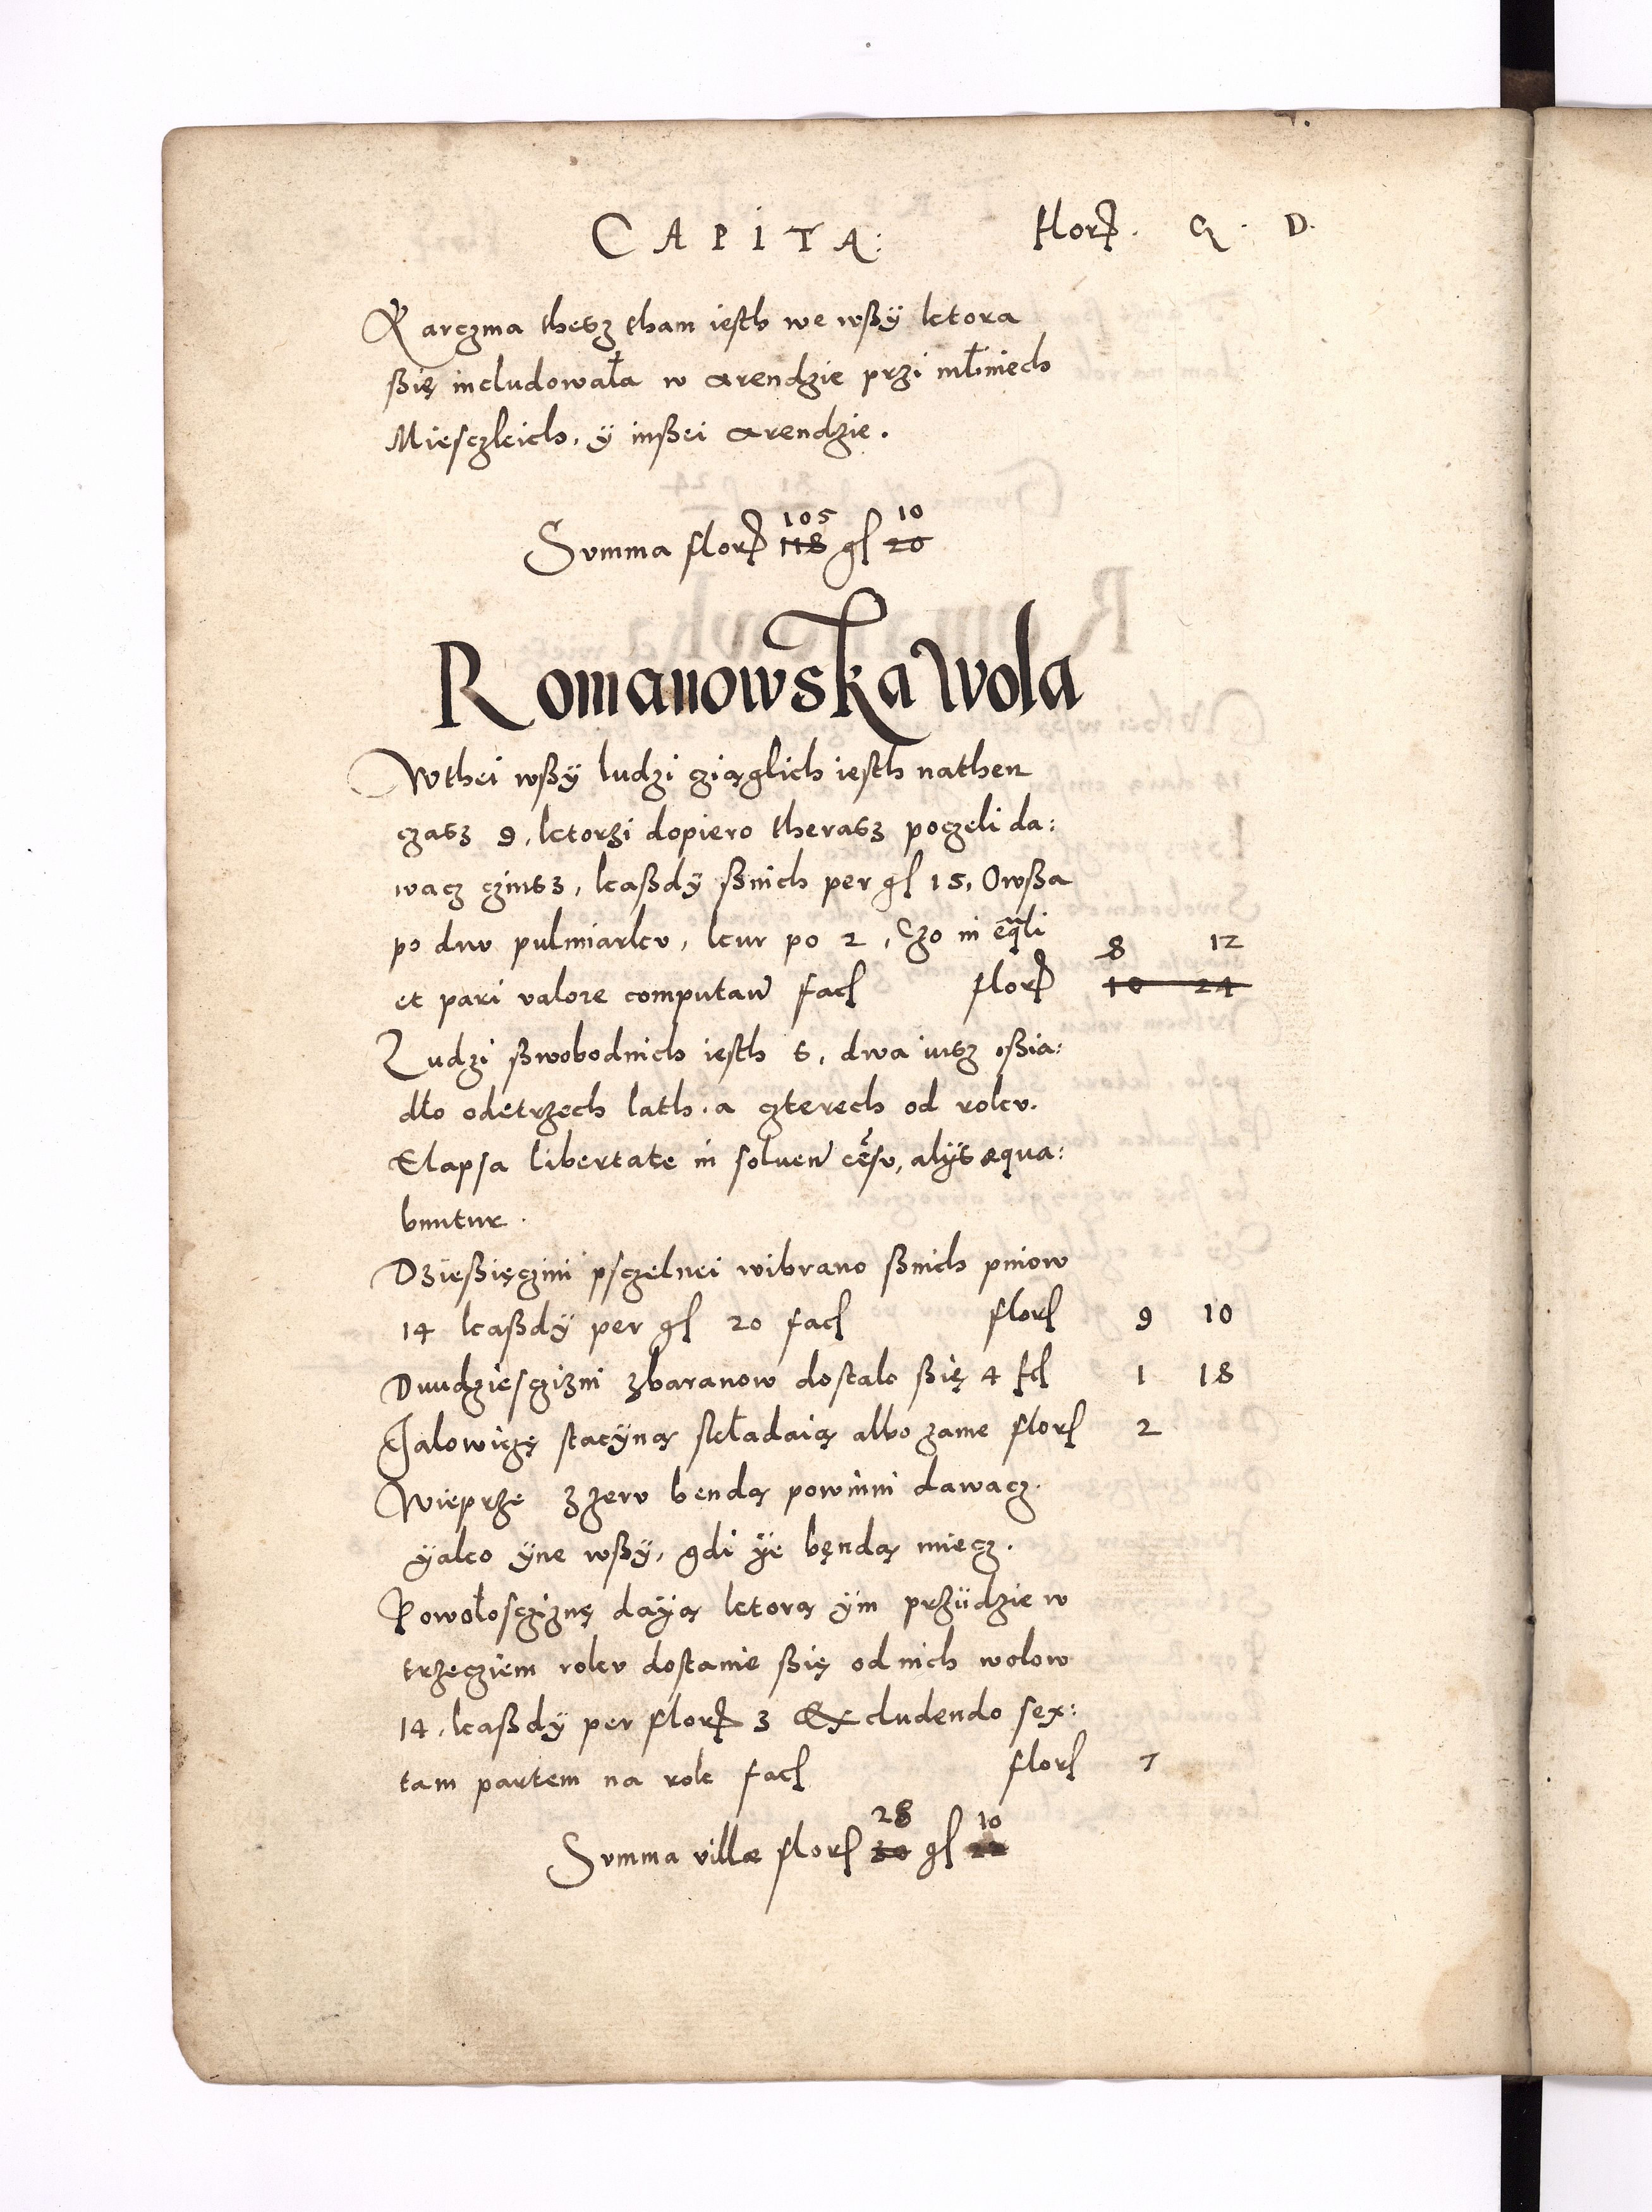 CAPITA: flor. G. D.
Karczma thesz tham iesth we wßÿ ktora
ßię includowała w arendzie przi młiniech
Miesczkich, ÿ inßei arendzie.
Summa flor 105 118 gl 10 20
Romanowska Wola
Wthei wßÿ ludzi cziąglich iesth nathen
czasz 9, ktorzi dopiero therasz poczeli da:
wacz czinsz, kaßdÿ ßnich per gl 15, Owßa
po dwv pulmiarkv, kur po 2, Czo in eqli
et pari valore computan facl flor 8 12
10 24
Ludzi ßwobodnich iesth 6, dwa iusz oßia:
dło odetrzech lath, a czterech od rokv.
Elapsa libertate in soluen cesv, alÿs æqua:
buntur.
Dzießięczini psczelnei wibrano ßnich pniow
14 kaßdÿ per gl 20 facl florl 9 10
Dwudziesczizni zbaranow dostalo ßię 4 fcl 1 18
Jalowiczę stacÿną składaią albo zanie florl 2
Wieprze zżerv bendą powinni dawacz.
ÿako ÿne wßÿ, gdi ÿe będą miecz.
Powołoscziznę daÿą ktorą ÿm przÿdzie w
trzecziem rokv dostanie ßię od nich wolow
14, kaßdÿ per flor 3 Excludendo sex:
tam partem na rok facl florl 7
Summa villæ florl 28 30 gl 10